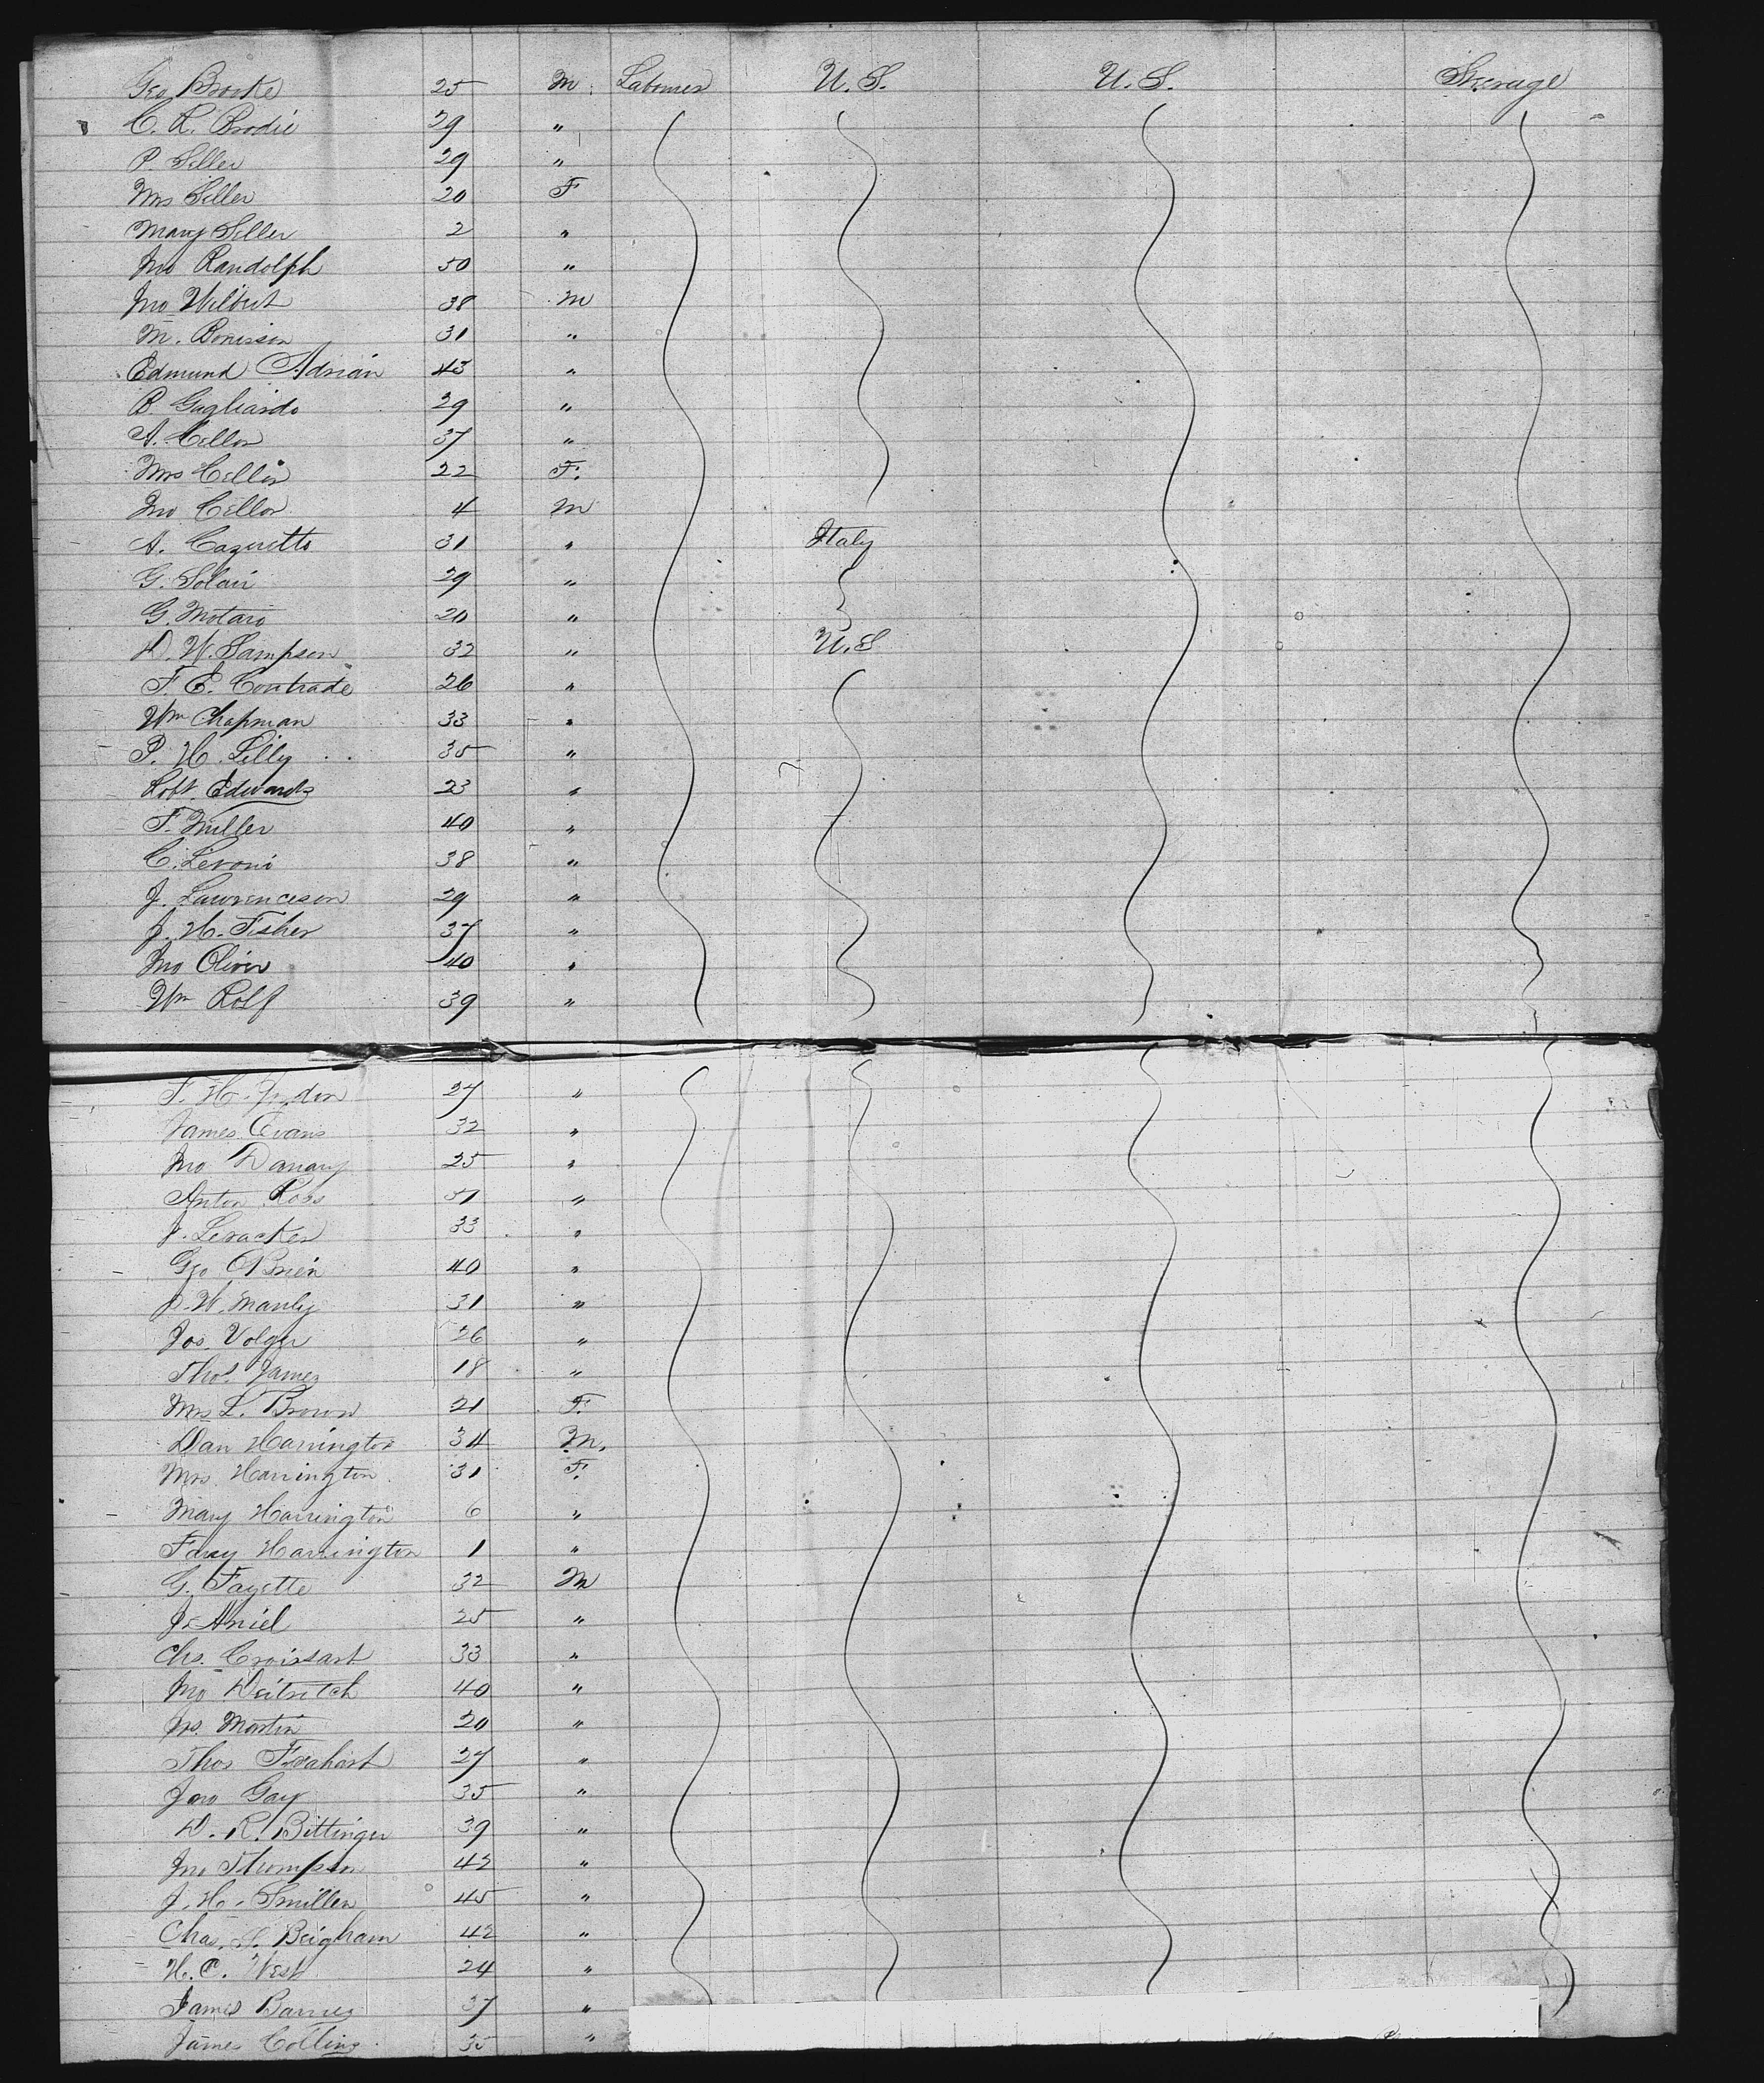 Geo Brooke 25 M. Labourer U.S. U.S. Steerage
C. R. Brodie 29 "
P. Siller 29 "
Mrs Siller 20 F
Mary Siller 2 "
Jno Randolph 50 "
Jno Wilbert 38 M
M. 31 "
Edmund Adrian 43 "
B. Gagliardo 29 "
A. Cellor 37 "
Mrs Cellor 22 F.
Jno Cellor 4 M
A. Cazaretto 31 " Italy
G. Solari 29 "
G. Motaro 20 "
D. W. Sampson 32 " U.S
F. E. Contrade 26 "
Wm Chapman 33 "
P. H. Lilly 35 "
Robt. Edwards 23 "
F. Miller 40 "
C. Levoni 38 "
J. Lawrenceson 29 "
J. H. Fisher 37 "
Jno Oliver 40 "
Wm Rolf 39 "
F. H. 27 "
James Evans 32 "
Jno Danary 25 "
Anton Ross "
J. Levacker 33 "
Geo OBrien 40 "
J. W. Manly 31 "
Jos. Volger 26 "
Thos. James 18 "
Mrs L. Brown 21 F.
Dan Harrington 34 M.
Mrs. Harrington 31 F.
Mary Harrington 6 "
Harrington 1 "
G. Fayette 32 M
J. Aniel 25 "
Chs. Croissart 33 "
Jno Deitritch 40 "
Jos. Martin 20 "
Thos 27 "
Jno Gay 35 "
D. R. Bittinger 39 "
Jno Thompson 42 "
J. H. Smiller 45 "
Chas. S. Beigham 42 "
H. C. West 24 "
James Barnes 37 "
James Collins 35 "